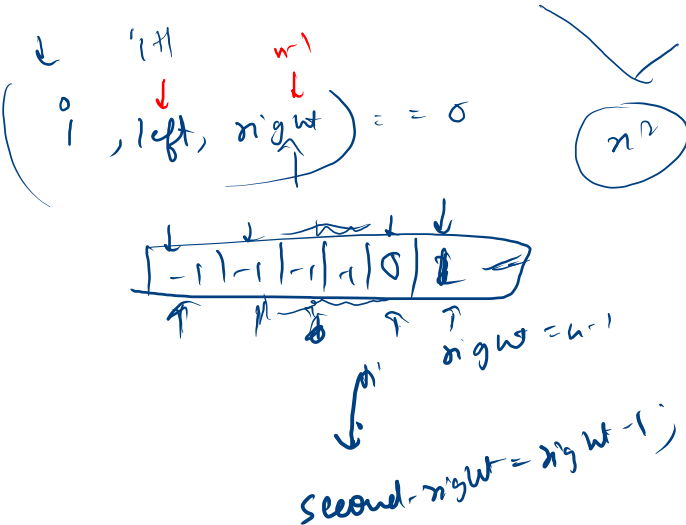 i+1 n-1
(i, left, right) == 0
n^2
-1 | -1 | -1 | -1 | 0 | 1
right = n-1
second-right = right-1;